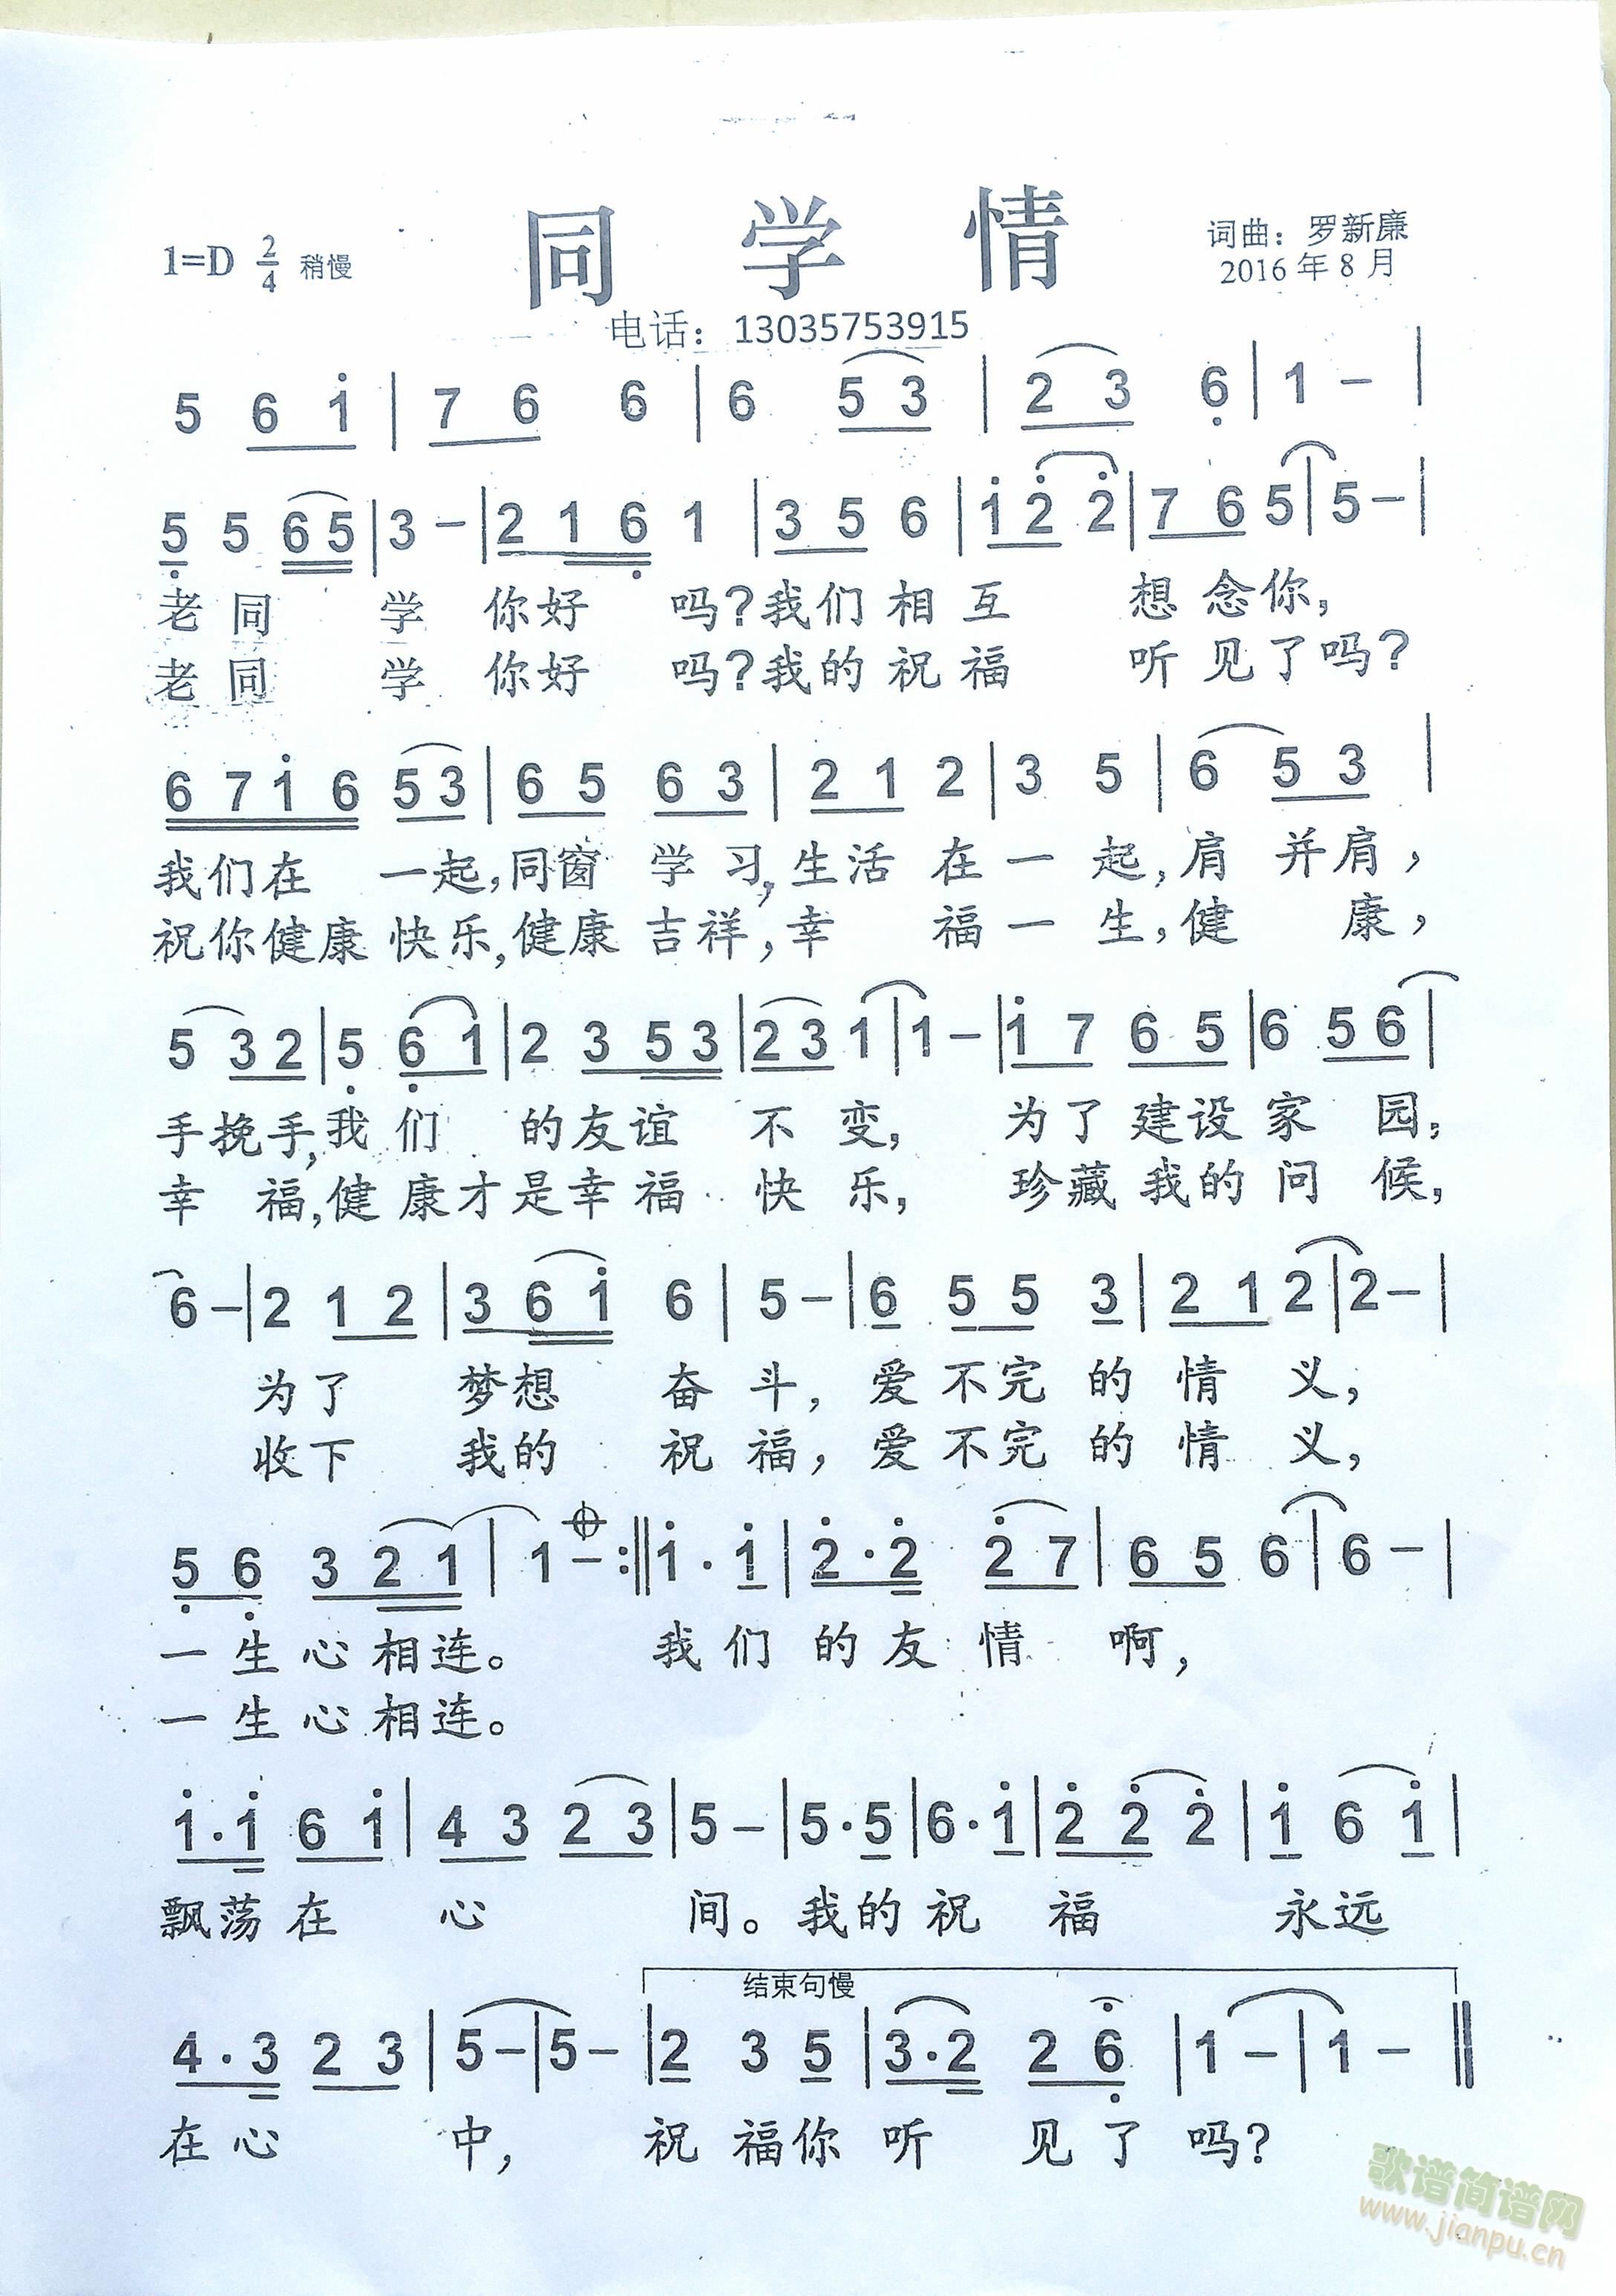 同 学 情
1=D 2/4 稍慢
词曲：罗新廉
2016 年 8 月
电话：13035753915
5 6 1 | 7 6 6 | 6 5 3 | 2 3 6 | 1 – |
5 5 6 5 | 3 – | 2 1 6 1 | 3 5 6 | 1 2 2 | 7 6 5 | 5 – |
老 同 学 你好 吗？我们 相 互 想 念你，
老 同 学 你好 吗？我的 祝 福 听 见了吗？
6 7 1 6 5 3 | 6 5 6 3 | 2 1 2 | 3 5 | 6 5 3 |
我们在 一起，同窗 学 习，生活 在 一 起，肩 并肩，
祝你健康 快乐，健康 吉祥，幸 福 一 生，健 康，
5 3 2 | 5 6 1 | 2 3 5 3 | 2 3 1 | 1 – | 1 7 6 5 | 6 5 6 |
手挽手，我 们 的友谊 不 变， 为了 建设 家 园；
幸 福，健 康才是幸 福 快 乐， 珍藏 我的 问 候，
6 – | 2 1 2 | 3 6 1 6 | 5 – | 6 5 5 3 | 2 1 2 | 2 – |
为了 梦想 奋 斗，爱 不完 的 情 义，
收下 我的 祝 福，爱 不完 的 情 义，
5 6 3 2 1 | 1 – :‖ 1 · 1 | 2 · 2 2 7 | 6 5 6 | 6 – |
一 生 心 相连。 我 们 的 友 情 啊，
一 生 心 相连。
1 · 1 6 1 | 4 3 2 3 | 5 – | 5 · 5 | 6 · 1 | 2 2 2 | 1 6 1 |
飘荡 在 心 间。我的 祝 福 永远
结束句慢
4 · 3 2 3 | 5 – | 5 – | 2 3 5 | 3 · 2 2 6 | 1 – | 1 – ‖
在 心 中， 祝 福你 听 见 了 吗？
歌谱简谱网
www.jianpu.cn